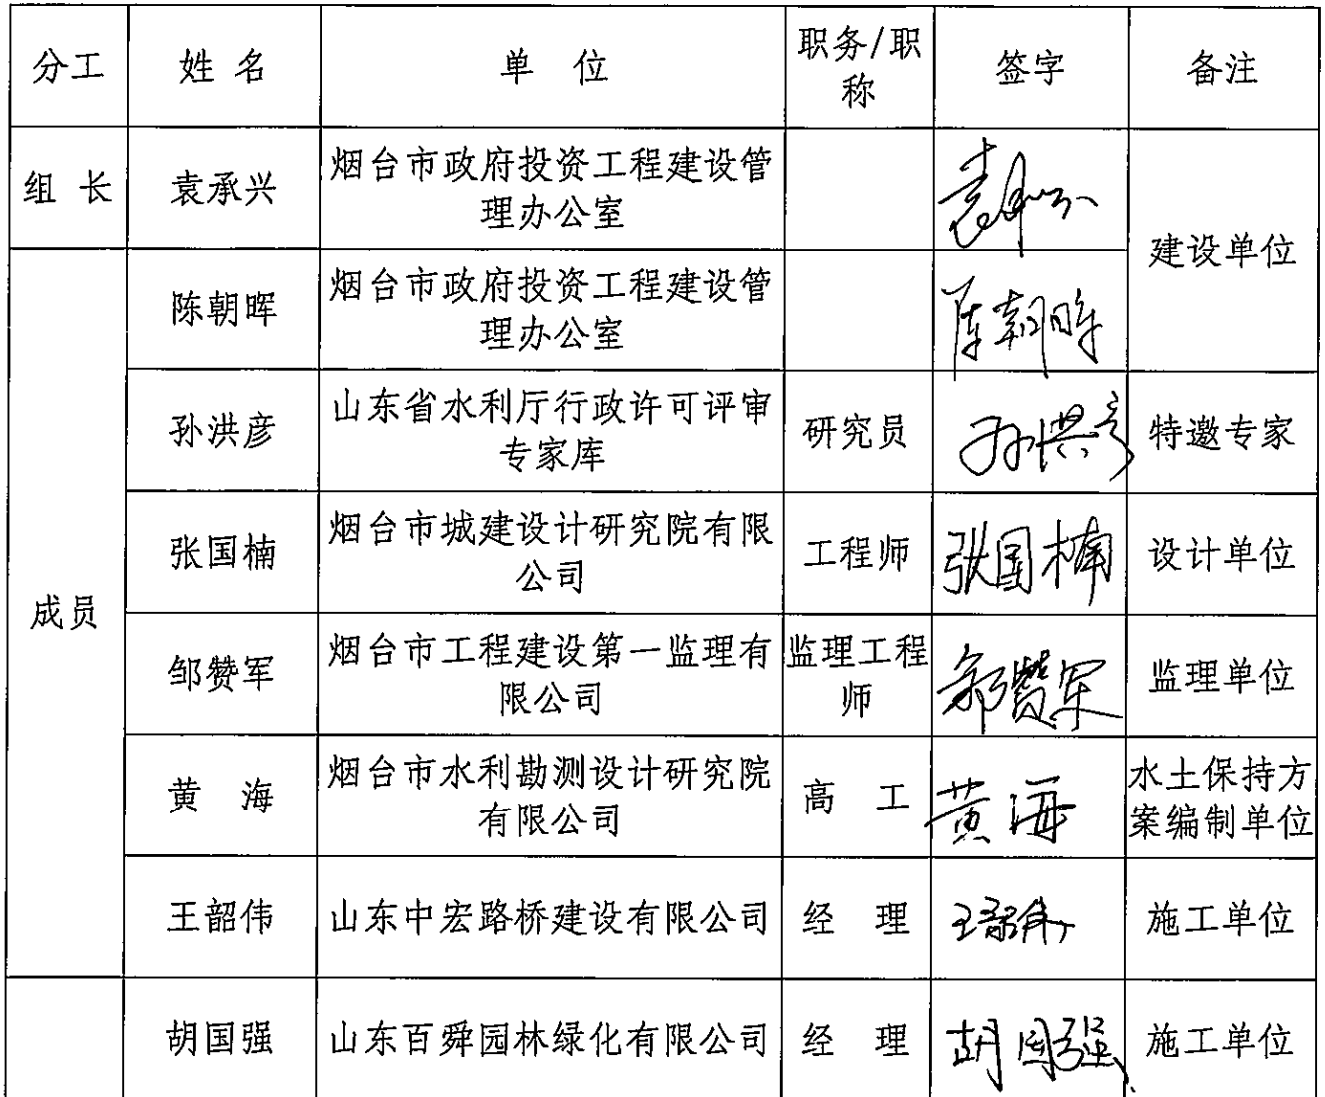 分工 姓 名 单 位 职务/职称 签字 备注
组 长 袁承兴 烟台市政府投资工程建设管理办公室 建设单位
成员 陈朝晖 烟台市政府投资工程建设管理办公室 陈朝晖
孙洪彦 山东省水利厅行政许可评审专家库 研究员 孙洪彦 特邀专家
张国楠 烟台市城建设计研究院有限公司 工程师 张国楠 设计单位
邹赞军 烟台市工程建设第一监理有限公司 监理工程师 邹赞军 监理单位
黄 海 烟台市水利勘测设计研究院有限公司 高 工 黄海 水土保持方案编制单位
王韶伟 山东中宏路桥建设有限公司 经 理 王韶伟 施工单位
胡国强 山东百舜园林绿化有限公司 经 理 胡国强 施工单位